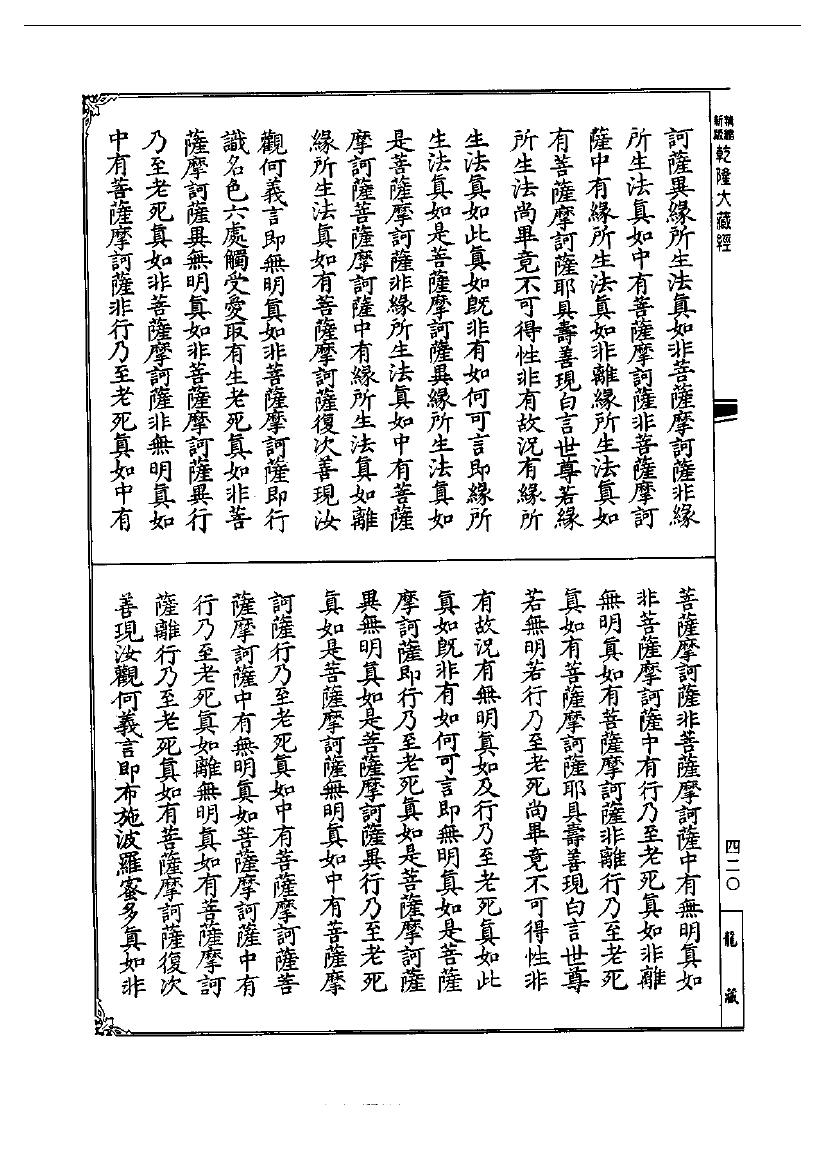 新編縮版 乾隆大藏經
訶薩異緣所生法真如非菩薩摩訶薩非緣
所生法真如中有菩薩摩訶薩非菩薩摩訶
薩中有緣所生法真如非離緣所生法真如
有菩薩摩訶薩耶具壽善現白言世尊若緣
所生法尚畢竟不可得性非有故況有緣所
生法真如此真如既非有如何可言即緣所
生法真如是菩薩摩訶薩異緣所生法真如
是菩薩摩訶薩非緣所生法真如中有菩薩
摩訶薩菩薩摩訶薩中有緣所生法真如離
緣所生法真如有菩薩摩訶薩復次善現汝
觀何義言即無明真如非菩薩摩訶薩即行
識名色六處觸受愛取有生老死真如非菩
薩摩訶薩異無明真如非菩薩摩訶薩異行
乃至老死真如非菩薩摩訶薩非無明真如
中有菩薩摩訶薩非行乃至老死真如中有
菩薩摩訶薩非菩薩摩訶薩中有無明真如
非菩薩摩訶薩中有行乃至老死真如非離
無明真如有菩薩摩訶薩非離行乃至老死
真如有菩薩摩訶薩耶具壽善現白言世尊
若無明若行乃至老死尚畢竟不可得性非
有故況有無明真如及行乃至老死真如此
真如既非有如何可言即無明真如是菩薩
摩訶薩即行乃至老死真如是菩薩摩訶薩
異無明真如是菩薩摩訶薩異行乃至老死
真如是菩薩摩訶薩無明真如中有菩薩摩
訶薩行乃至老死真如中有菩薩摩訶薩菩
薩摩訶薩中有無明真如菩薩摩訶薩中有
行乃至老死真如離無明真如有菩薩摩訶
薩離行乃至老死真如有菩薩摩訶薩復次
善現汝觀何義言即布施波羅蜜多真如非
四二〇
龍藏